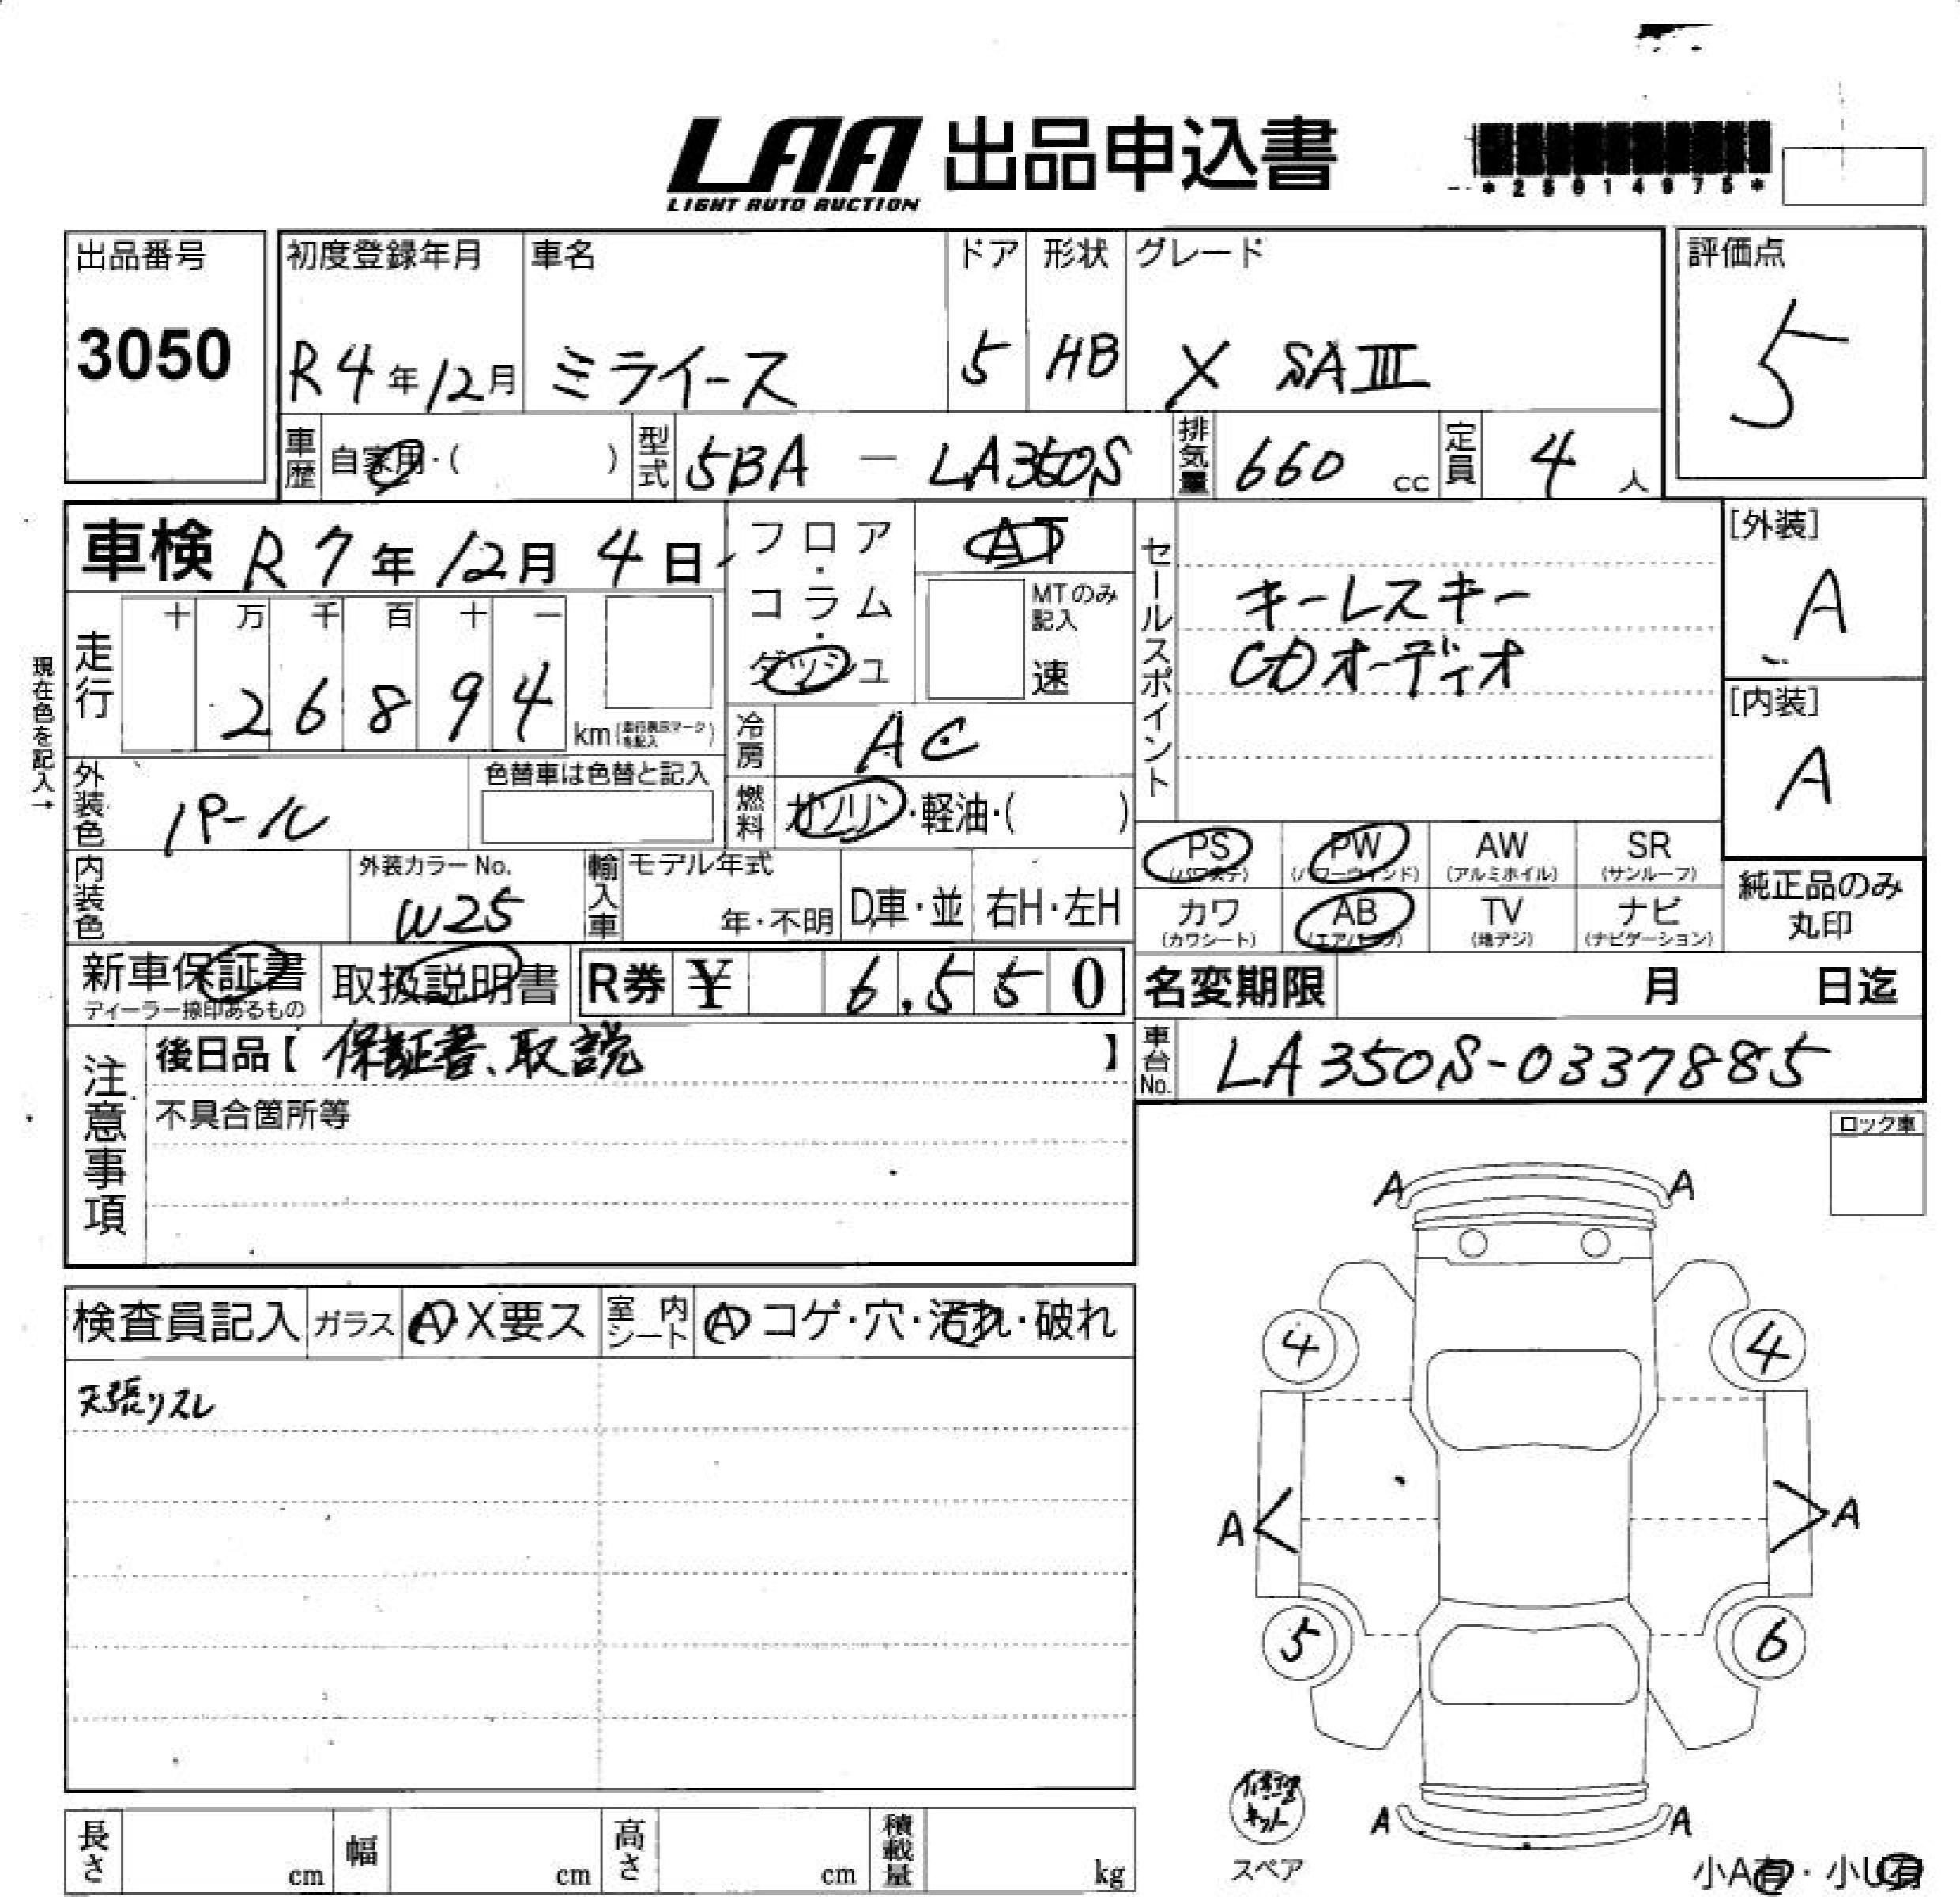 LAA 出品申込書
LIGHT AUTO AUCTION
出品番号
3050
初度登録年月
R4年12月
車名
ミライース
ドア
5
形状
HB
グレード
X SAⅢ
評価点
5
車歴 自家用・( )
型式 5BA - LA350S
排気量 660 cc
定員 4 人
車検 R7年12月4日
フロア・コラム・ダッシュ
AT
MTのみ記入
速
セールスポイント
キーレスキー
CDオーディオ
[外装]
A
[内装]
A
現在色を記入→
走行
十 万 千 百 十 一
2 6 8 9 4 km
冷房 AC
外装色 パール
色替車は色替と記入
燃料 ガソリン・軽油・( )
PS (パワステ)
PW (パワーウインド)
AW (アルミホイル)
SR (サンルーフ)
カワ (カワシート)
AB (エアバッグ)
TV (地デジ)
ナビ (ナビゲーション)
純正品のみ丸印
内装色
外装カラーNo.
W25
輸入車
モデル年式
年・不明
D車・並
右H・左H
新車保証書
ディーラー捺印あるもの
取扱説明書
R券 ¥ 6,550
名変期限 月 日迄
車台No. LA350S-0337885
注意事項
後日品【 保証書、取説 】
不具合箇所等
ロック車
検査員記入 ガラス A X要ス
室内シート A コゲ・穴・汚れ・破れ
天張リスレ
A A
4 4
A A
5 6
A A
修理キット
スペア
小A有・小U有
長さ cm
幅 cm
高さ cm
積載量 kg